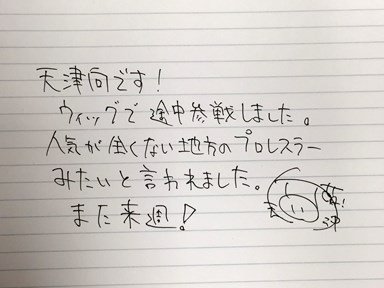 天津向です!
ウィッグで途中参戦しました。
人気が全くない地方のプロレスラー
みたいと言われました。
また来週!